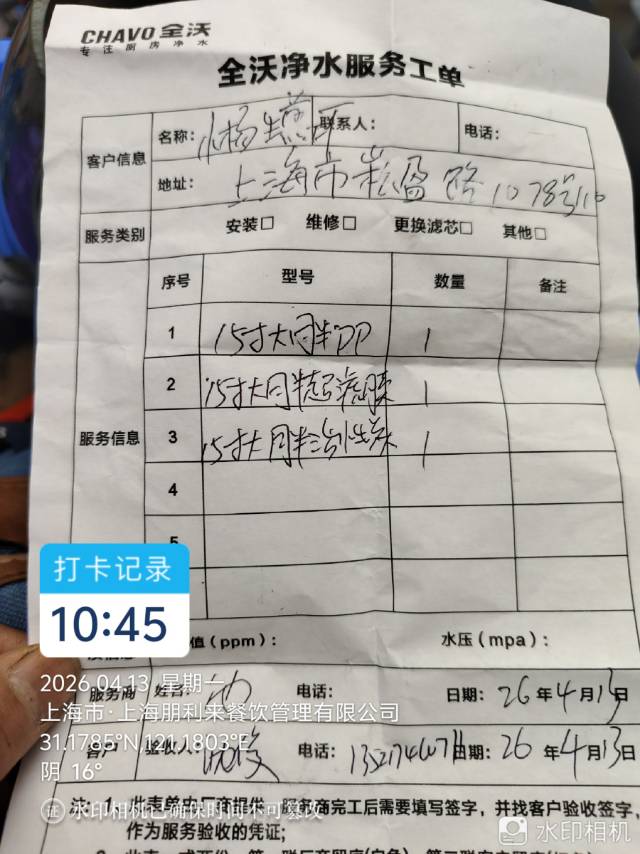 CHAVO 全沃
专注厨房净水
全沃净水服务工单
客户信息
名称：杨生煎 联系人： 电话：
地址：上海市崧盈路1078号110
服务类别 安装□ 维修□ 更换滤芯□ 其他□
服务信息
序号 型号 数量 备注
1 15寸大同半PP 1
2 15寸大同半超滤膜 1
3 15寸大同半 1
4
5
打卡记录
10:45
值（ppm）： 水压（mpa）：
2026.04.13 星期一
服务商 姓名： 电话： 日期：26年4月13日
上海市·上海朋利来餐饮管理有限公司
31.1785°N,121.1803°E
客户 验收人： 电话： 日期：26年4月13日
阴 16°
注：1、此表单由厂商提供，服务商完工后需要填写签字，并找客户验收签字，
证 水印相机已确保时间不可篡改
作为服务验收的凭证；
水印相机